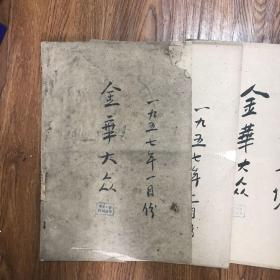 金華大众
一九五七年一月份
一九五七年 月份
金華大众